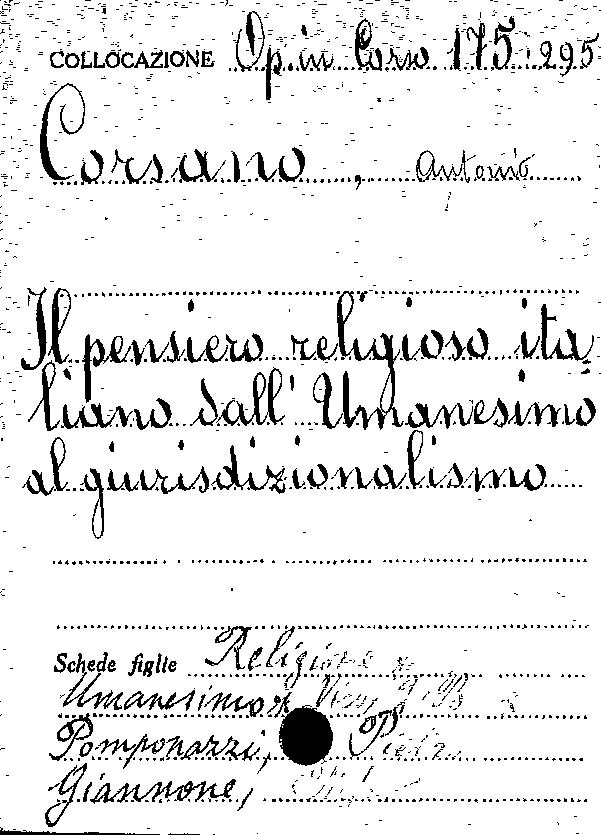 COLLOCAZIONE Op. in Corso 175.295
Corsano, Antonio
Il pensiero religioso ita-
liano dall' Umanesimo
al giurisdizionalismo
Schede figlie Religione
Umanesimo
Pomponazzi, Pietro
Giannone,